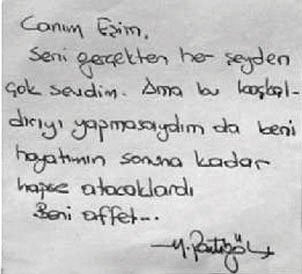 Canım Eşim,
Seni gerçekten her şeyden
çok sevdim. Ama bu
dırıyı yapmasaydım da beni
hayatımın sonuna kadar
hapse atacaklardı
Beni affet...